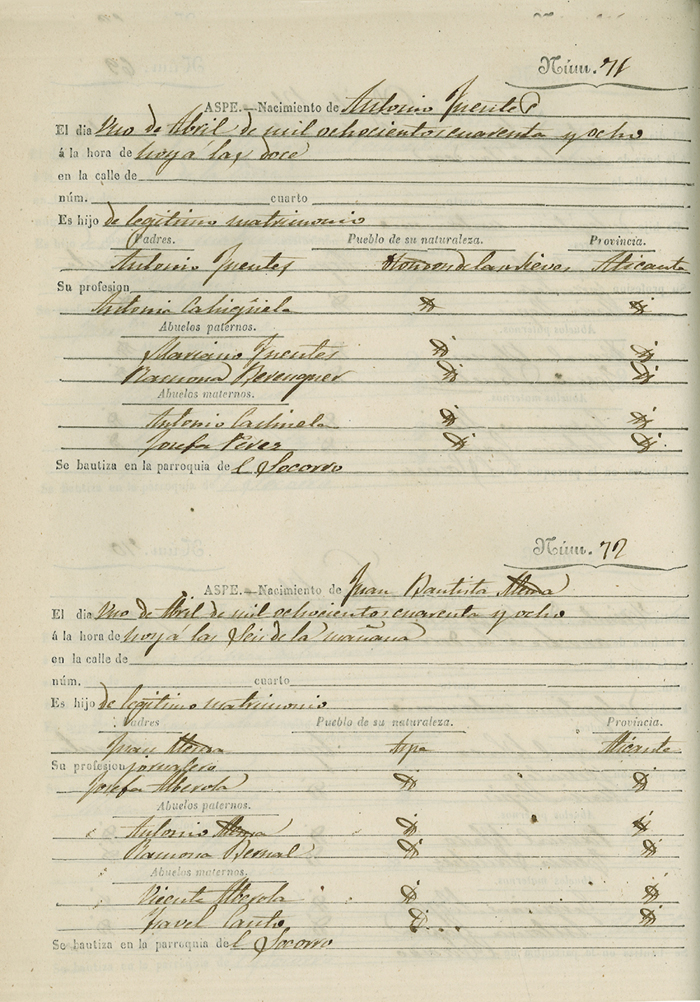 Núm. 71
ASPE.—Nacimiento de Antonio Fuentes
El dia uno de Abril de mil ochocientos cuarenta y ocho
á la hora de hoy á las doce
en la calle de
núm. cuarto
Es hijo de legitimo matrimonio
Padres. Pueblo de su naturaleza. Provincia.
Antonio Fuentes Hondon de las Nieves Alicante
Su profesion
Antonia
Abuelos paternos.
Mariano Fuentes
Ramona Berenguer
Abuelos maternos.
Antonio
Josefa Perez
Se bautiza en la parroquia de el Socorro
Núm. 72
ASPE.—Nacimiento de Juan Bautista
El dia uno de Abril de mil ochocientos cuarenta y ocho
á la hora de hoy á las seis de la mañana
en la calle de
núm. cuarto
Es hijo de legitimo matrimonio
Padres Pueblo de su naturaleza. Provincia.
Juan Aspe Alicante
Su profesion jornalero
Josefa Alberola
Abuelos paternos.
Antonio
Ramona Bernal
Abuelos maternos.
Vicente Alberola
Isavel Canto
Se bautiza en la parroquia de el Socorro